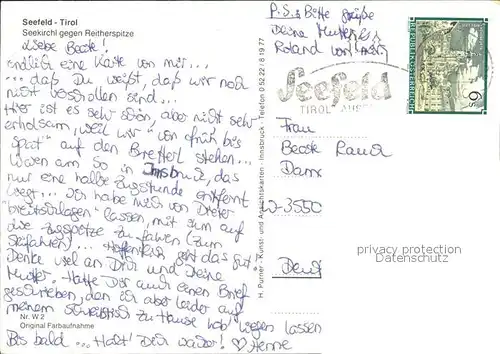 Seefeld - Tirol
Seekirchl gegen Reitherspitze
Liebe Beate!
endlich eine Karte von mir...
... daß Du weißt, daß wir noch
nicht verschollen sind...
Hier ist es sehr schön, aber nicht sehr
erholsam, weil wir "von früh bis
spät" auf den Bretterl stehen...
Waren am So in Innsbruck, das
nur eine halbe Zugstunde entfernt
liegt... Ich habe mich von Dieter
"breitschlagen" lassen, mit ihm auf
die Zugspitze zu fahren (zum
Skifahren)... Hoffentlich geht das gut!
Denke viel an Dich und Deine
Mutter. Hatte Dir auch einen Brief
geschrieben, den ich aber leider auf
meinem Schreibtisch zu Hause hab' liegen lassen
Nr. W 2
Original Farbaufnahme
Bis bald ... Halt' Dich wacker! Henne
H. Purner - Kunst- und Ansichtskarten - Innsbruck - Telefon 0 52 22 / 8 19 77
P.S.: Bitte grüße
Deine Mutter &
Roland von
Seefeld
TIROL
REPUBLIK ÖSTERREICH
S 6
Frau
Beate
W-3550
privacy protection
Datenschutz